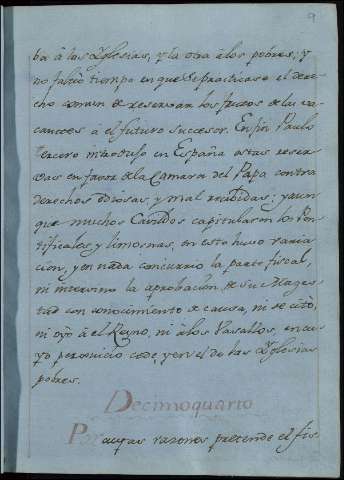 9
ba á las Yglesias, y la otra á los pobres; y
no faltó tiempo en que se practicase el dere-
cho comun de reservar los frutos de las va-
cantes á el futuro succesor. En fin Paulo
tercero introdujo en España estas reser-
vas en favor de la Camara del Papa contra
derechos odiosas, y mal recibidas; y aun
que muchos Cavildos capitularon los Pon-
tificales y limosnas, en esto huvo varia-
cion, y en nada concurrio la parte fiscal,
ni intervino la aprobacion de Su Mages-
tad con conocimiento de causa, ni se citó,
ni oyó á el Reyno, ni á los Vasallos, en cu-
yo perjuicio cede, y en el de las Yglesias
pobres.
Decimoquarto
Por cuyas razones pretende el fis-